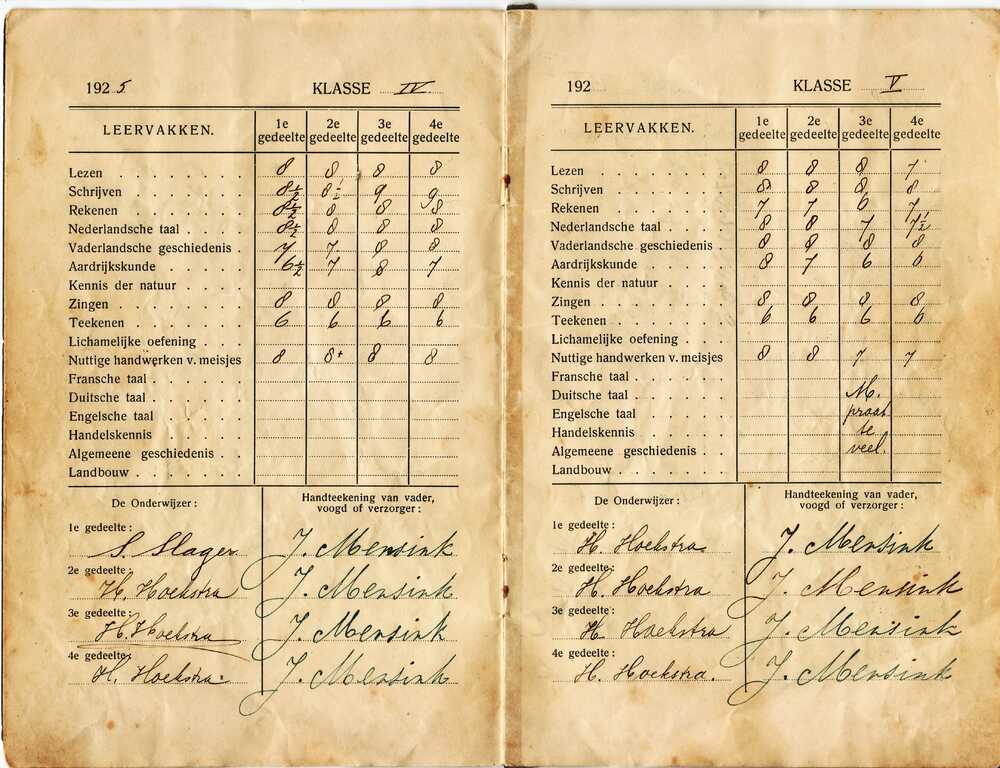 1925 KLASSE IV
LEERVAKKEN. 1e gedeelte 2e gedeelte 3e gedeelte 4e gedeelte
Lezen 8 8 8 8
Schrijven 8½ 8½ 9 9
Rekenen 8½ 8 8 8
Nederlandsche taal 8½ 8 8 8
Vaderlandsche geschiedenis 7 7 8 8
Aardrijkskunde 6½ 7 8 7
Kennis der natuur
Zingen 8 8 8 8
Teekenen 6 6 6 6
Lichamelijke oefening
Nuttige handwerken v. meisjes 8 8+ 8 8
Fransche taal
Duitsche taal
Engelsche taal
Handelskennis
Algemeene geschiedenis
Landbouw
De Onderwijzer: Handteekening van vader, voogd of verzorger:
1e gedeelte: S. Slager J. Mensink
2e gedeelte: H. Hoekstra J. Mensink
3e gedeelte: H. Hoekstra J. Mensink
4e gedeelte: H. Hoekstra. J. Mensink
192 KLASSE V
LEERVAKKEN. 1e gedeelte 2e gedeelte 3e gedeelte 4e gedeelte
Lezen 8 8 8 7
Schrijven 8 8 8 8
Rekenen 7 7 6 7
Nederlandsche taal 8 8 7 7½
Vaderlandsche geschiedenis 8 8 8 8
Aardrijkskunde 8 7 6 6
Kennis der natuur
Zingen 8 8 8 8
Teekenen 6 6 6 6
Lichamelijke oefening
Nuttige handwerken v. meisjes 8 8 7 7
Fransche taal
Duitsche taal M.
Engelsche taal praat
Handelskennis te
Algemeene geschiedenis veel.
Landbouw
De Onderwijzer: Handteekening van vader, voogd of verzorger:
1e gedeelte: H. Hoekstra. J. Mensink
2e gedeelte: H. Hoekstra J. Mensink
3e gedeelte: H. Hoekstra J. Mensink
4e gedeelte: H. Hoekstra. J. Mensink